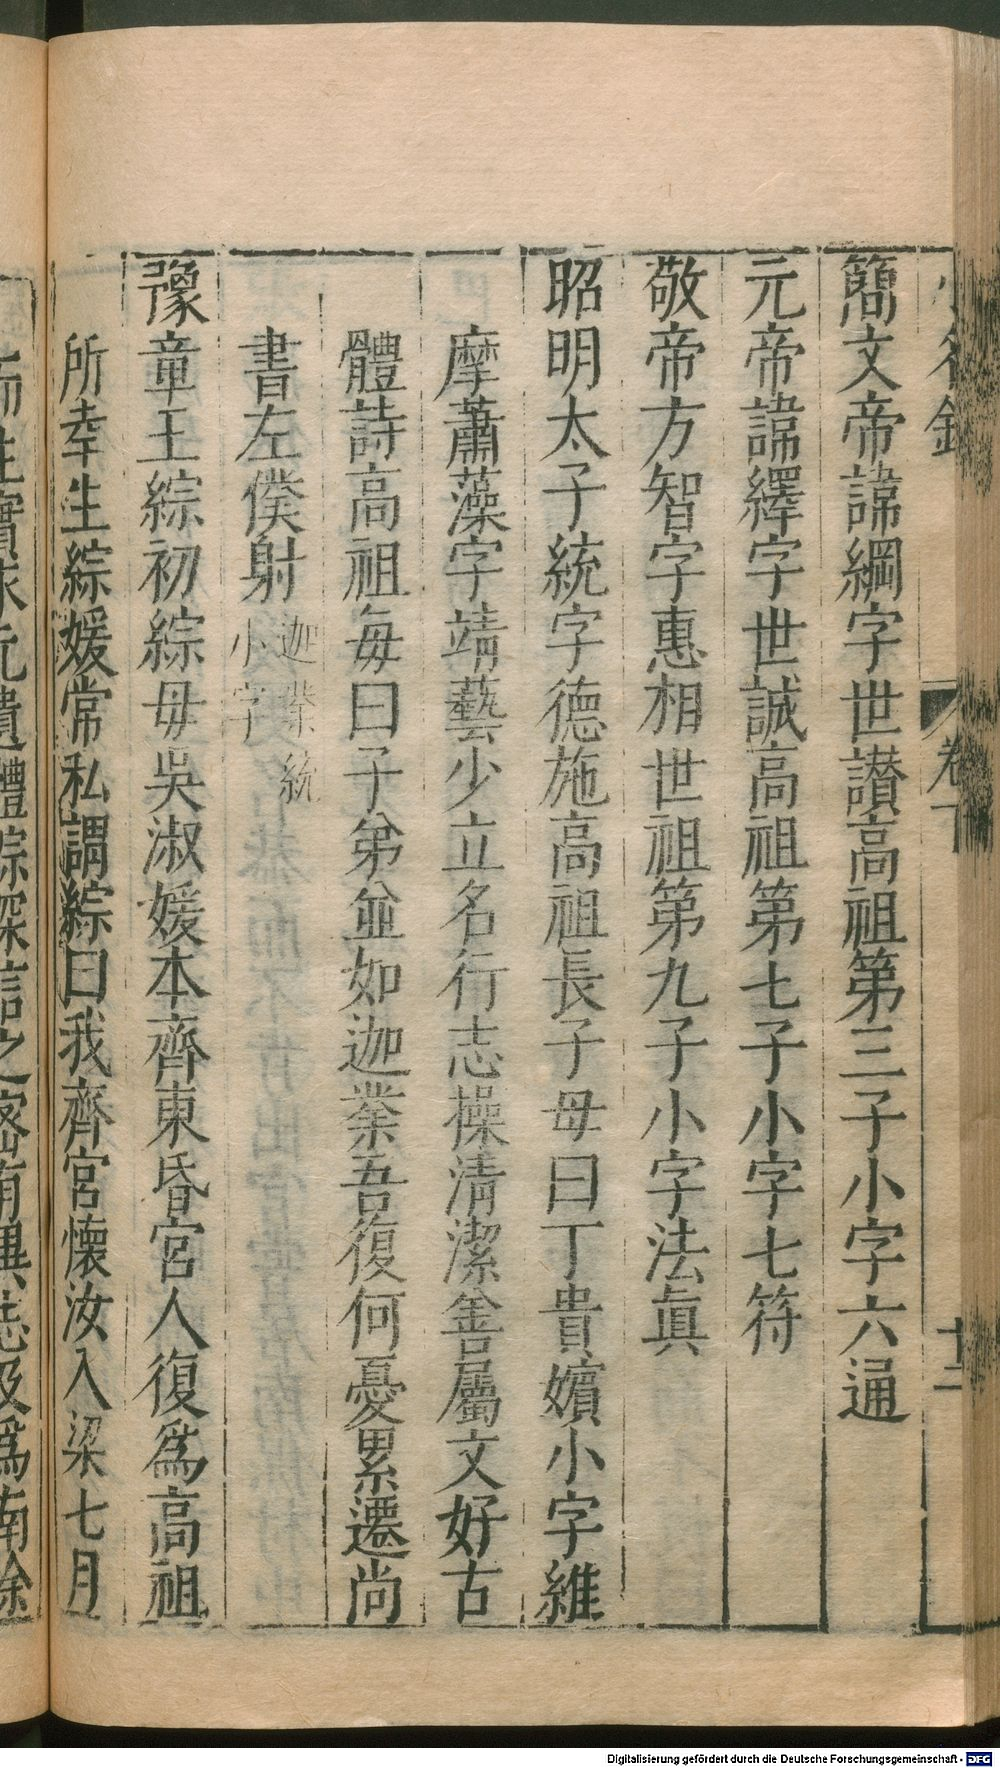 小名錄 卷下 十二
簡文帝諱綱字世讃高祖第三子小字六通
元帝諱繹字世誠高祖第七子小字七符
敬帝方智字惠相世祖第九子小字法眞
昭明太子統字德施高祖長子母曰丁貴嬪小字維
摩蕭藻字靖藝少立名行志操清潔善屬文好古
體詩高祖每曰子弟並如迦業吾復何憂累遷尚
書左僕射迦業統小字
豫章王綜初綜母吳淑媛本齊東昏宮人復爲高祖
所幸生綜媛常私謂綜曰我齊宮懷汝入梁七月
遺體綜深信之密有異志及爲南徐
Digitalisierung gefördert durch die Deutsche Forschungsgemeinschaft - DFG